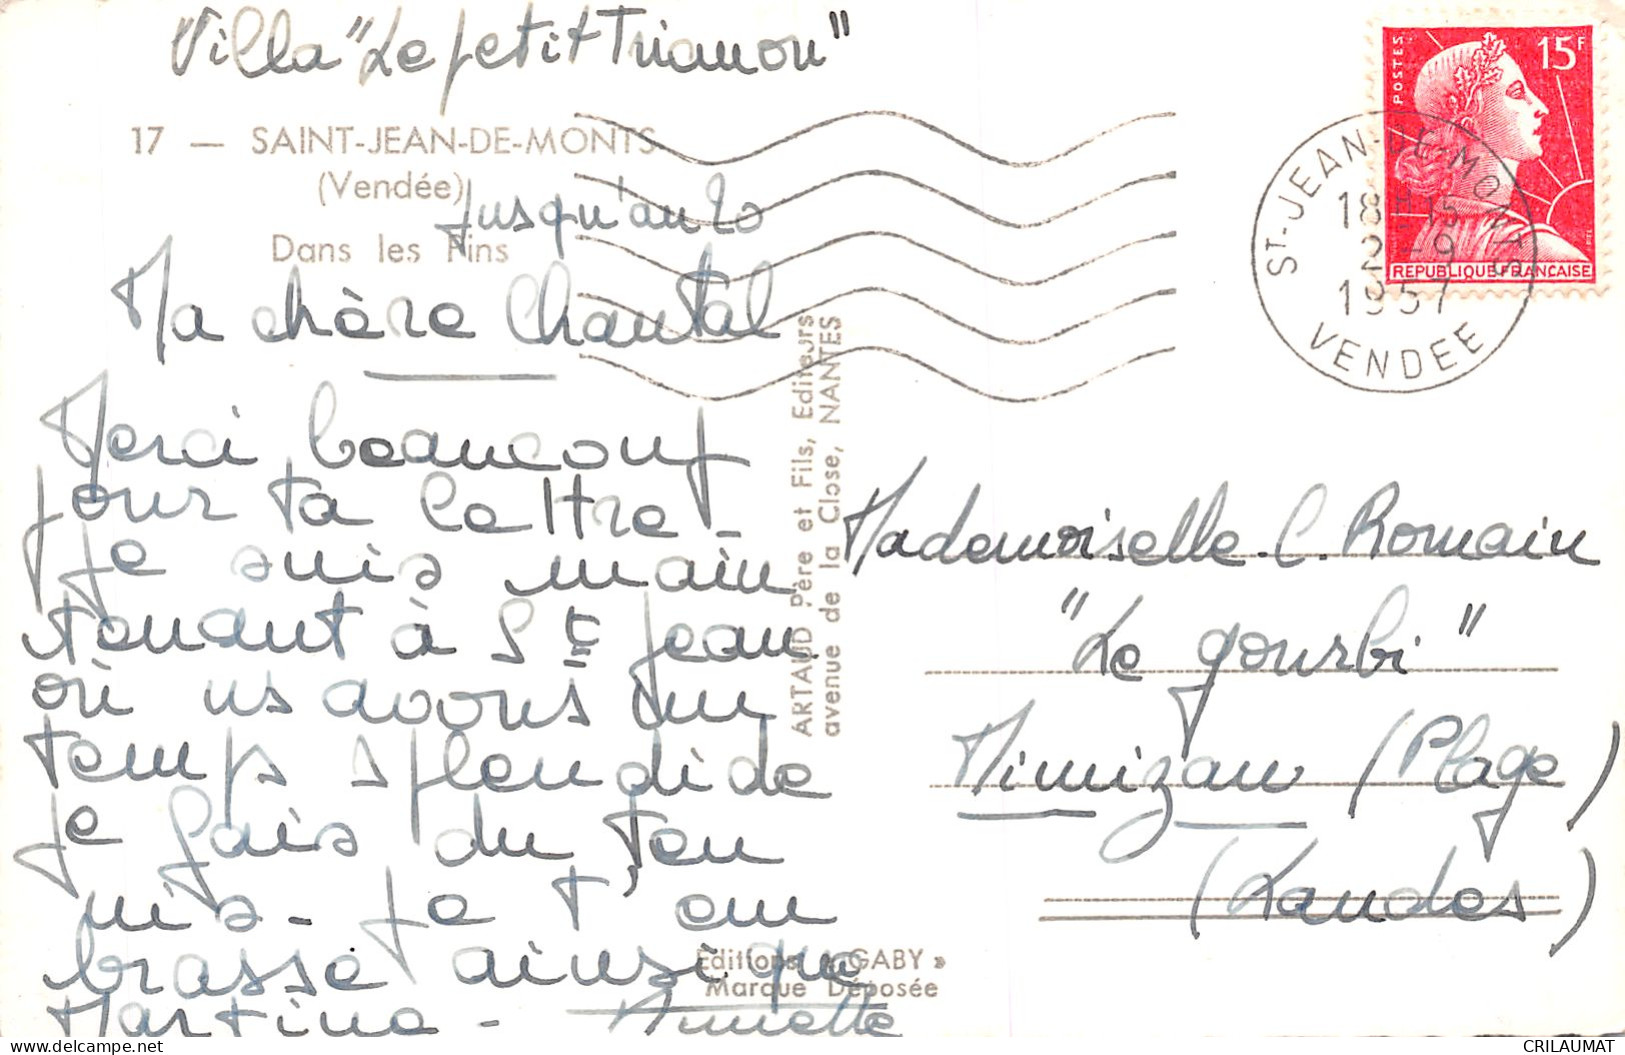 Villa "Le petit Trianon"
17 — SAINT-JEAN-DE-MONTS
(Vendée)
jusqu'au 20
Dans les Pins
Ma chère Chantal
Merci beaucoup
pour ta lettre -
je suis main
tenant à St Jean
où ns avons un
temps splendide
je fais du ten
nis - je t'em
brasse ainsi que
Martine - Annette
ARTAUD Père et Fils, Editeurs
avenue de la Close, NANTES
Editions « GABY »
Marque Déposée
POSTES
15F
REPUBLIQUE FRANCAISE
ST-JEAN-DE-MONTS
18H15
2-9
1957
VENDEE
Mademoiselle C. Romain
"Le gourbi"
Mimizan (Plage)
(Landes)
delcampe.net
CRILAUMAT